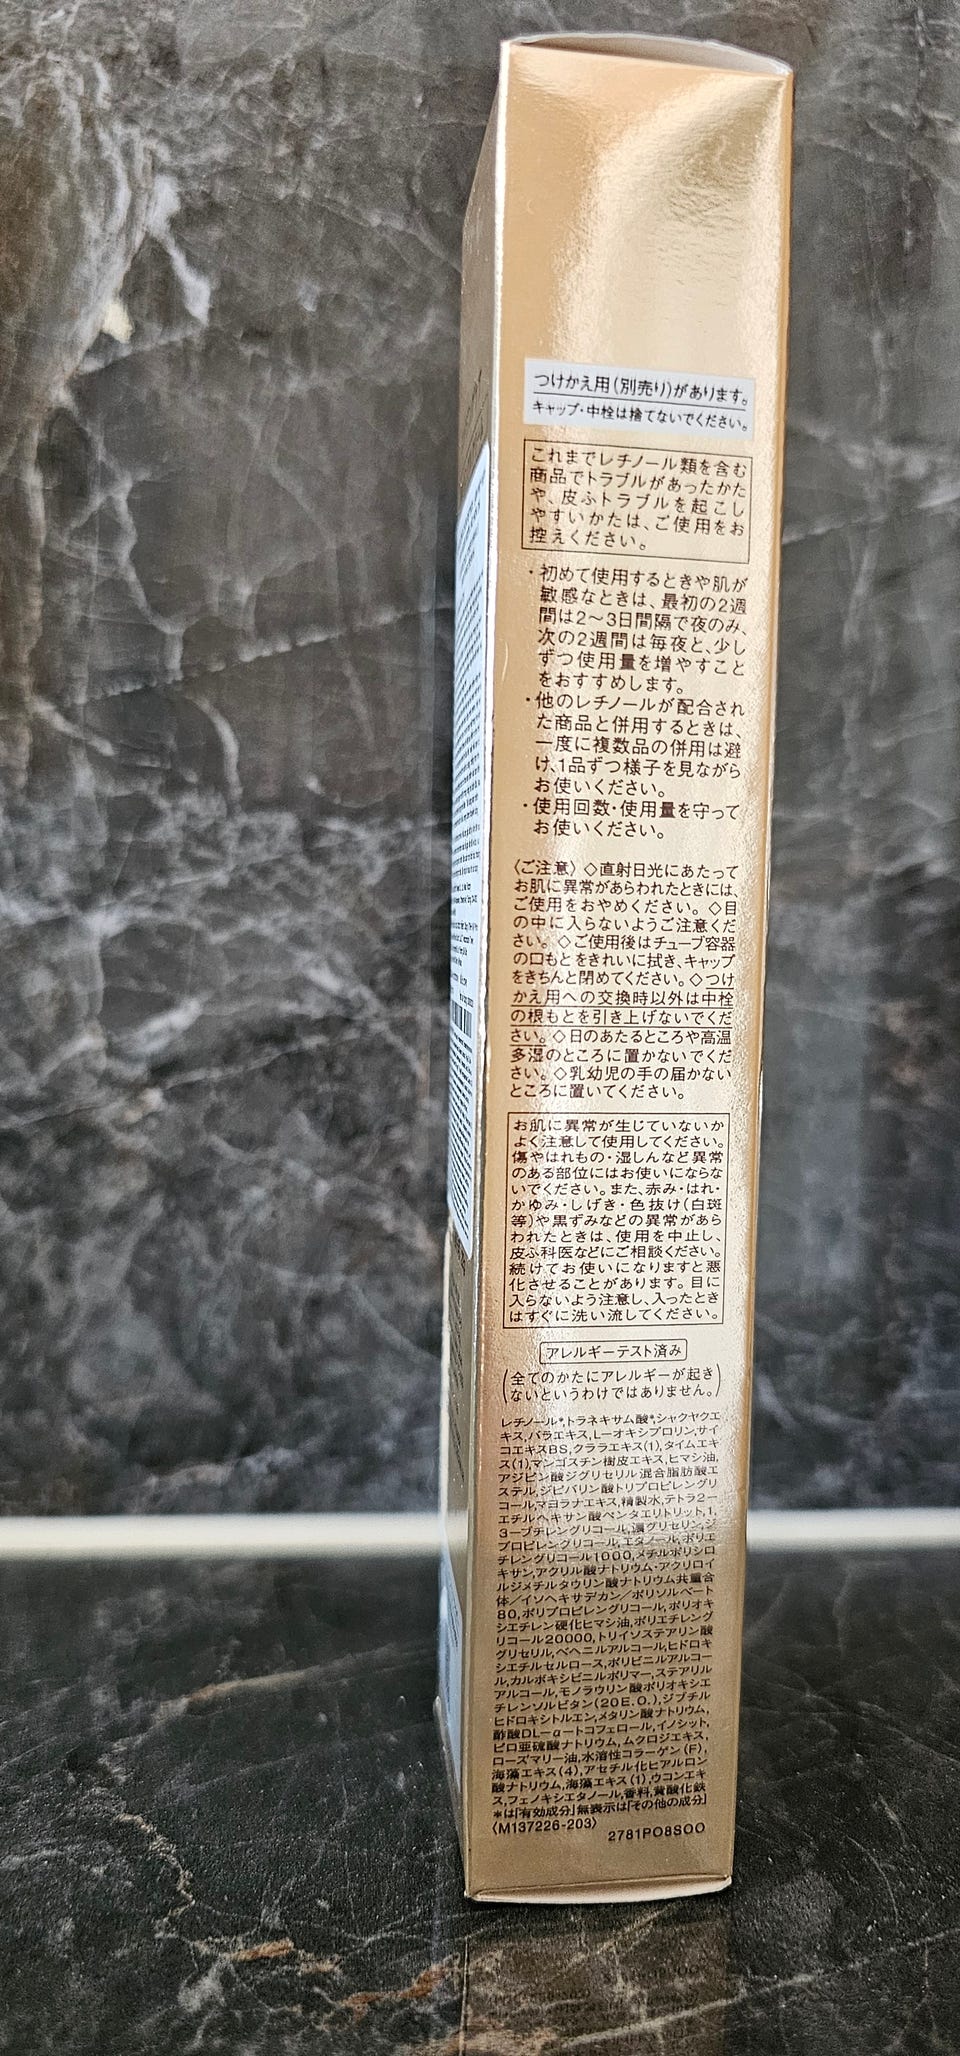 つけかえ用(別売り)があります。
キャップ・中栓は捨てないでください。
これまでレチノール類を含む
商品でトラブルがあったかた
や、皮ふトラブルを起こし
やすいかたは、ご使用をお
控えください。
・初めて使用するときや肌が
敏感なときは、最初の2週
間は2〜3日間隔で夜のみ、
次の2週間は毎夜と、少し
ずつ使用量を増やすこと
をおすすめします。
・他のレチノールが配合され
た商品と併用するときは、
一度に複数品の併用は避
け、1品ずつ様子を見ながら
お使いください。
・使用回数・使用量を守って
お使いください。
〈ご注意〉◇直射日光にあたって
お肌に異常があらわれたときには、
ご使用をおやめください。◇目
の中に入らないようご注意くだ
さい。◇ご使用後はチューブ容器
の口もとをきれいに拭き、キャップ
をきちんと閉めてください。◇つけ
かえ用への交換時以外は中栓
の根もとを引き上げないでくだ
さい。◇日のあたるところや高温
多湿のところに置かないでくだ
さい。◇乳幼児の手の届かない
ところに置いてください。
お肌に異常が生じていないか
よく注意して使用してください。
傷やはれもの・湿しんなど異常
のある部位にはお使いにならな
いでください。また、赤み・はれ・
かゆみ・しげき・色抜け(白斑
等)や黒ずみなどの異常があら
われたときは、使用を中止し、
皮ふ科医などにご相談ください。
続けてお使いになりますと悪
化させることがあります。目に
入らないよう注意し、入ったとき
はすぐに洗い流してください。
アレルギーテスト済み
(全てのかたにアレルギーが起き
ないというわけではありません。)
レチノール*,トラネキサム酸*,シャクヤクエ
キス,バラエキス,L-オキシプロリン,サイ
コエキスBS,クララエキス(1),タイムエキ
ス(1),マンゴスチン樹皮エキス,ヒマシ油,
アジピン酸ジグリセリル混合脂肪酸エ
ステル,ジピバリン酸トリプロピレングリ
コール,マヨラナエキス,精製水,テトラ2-
エチルヘキサン酸ペンタエリトリット,1,
3-ブチレングリコール,濃グリセリン,ジ
プロピレングリコール,エタノール,ポリエ
チレングリコール1000,メチルポリシロ
キサン,アクリル酸ナトリウム・アクリロイ
ルジメチルタウリン酸ナトリウム共重合
体/イソヘキサデカン/ポリソルベート
80,ポリプロピレングリコール,ポリオキ
シエチレン硬化ヒマシ油,ポリエチレング
リコール20000,トリイソステアリン酸
グリセリル,ベヘニルアルコール,ヒドロキ
シエチルセルロース,ポリビニルアルコー
ル,カルボキシビニルポリマー,ステアリル
アルコール,モノラウリン酸ポリオキシエ
チレンソルビタン(20E.O.),ジブチル
ヒドロキシトルエン,メタリン酸ナトリウム,
酢酸DL-α-トコフェロール,イノシット,
ピロ亜硫酸ナトリウム,ムクロジエキス,
ローズマリー油,水溶性コラーゲン(F),
海藻エキス(4),アセチル化ヒアルロン
酸ナトリウム,海藻エキス(1),ウコンエキ
ス,フェノキシエタノール,香料,黄酸化鉄
*は「有効成分」無表示は「その他の成分」
〈M137226-203〉
2781PO8SOO